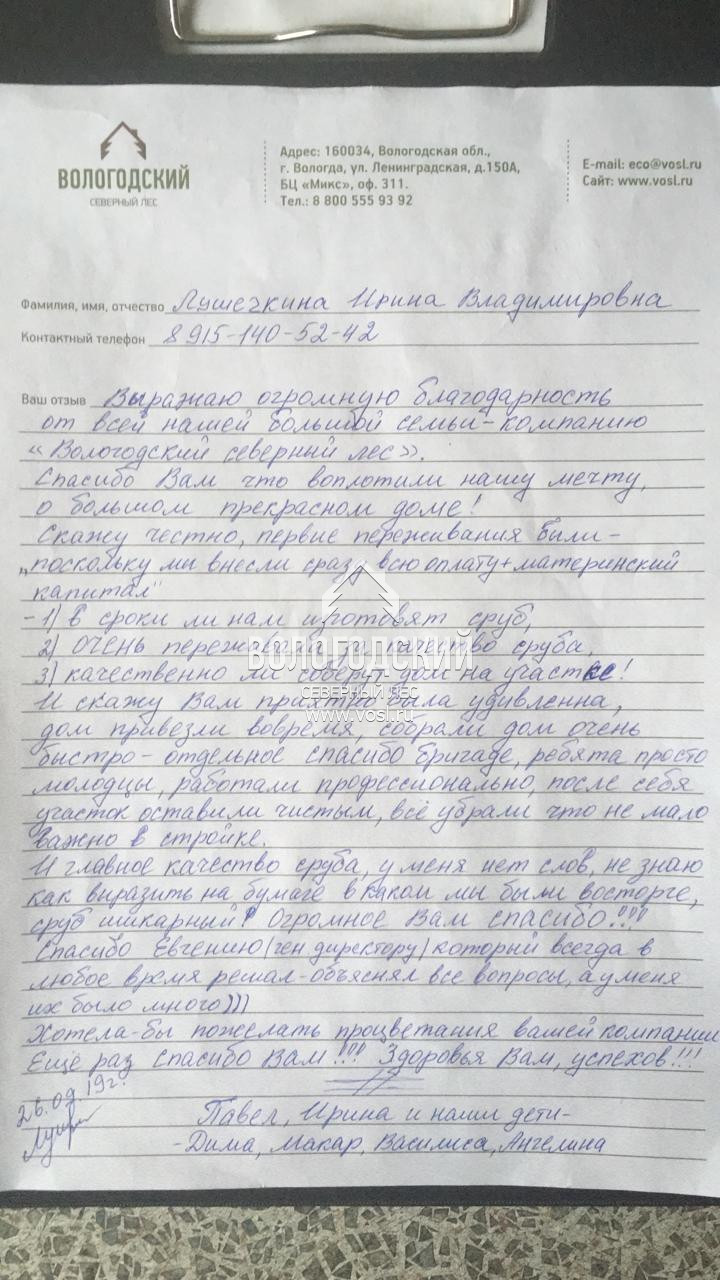 ВОЛОГОДСКИЙ
СЕВЕРНЫЙ ЛЕС
Адрес: 160034, Вологодская обл.,
г. Вологда, ул. Ленинградская, д.150А,
БЦ «Микс», оф. 311.
Тел.: 8 800 555 93 92
E-mail: eco@vosl.ru
Сайт: www.vosl.ru
Фамилия, имя, отчество Лушечкина Ирина Владимировна
Контактный телефон 8 915-140-52-42
Ваш отзыв Выражаю огромную благодарность
от всей нашей большой семьи - компанию
«Вологодский северный лес».
Спасибо Вам что воплотили нашу мечту,
о большом прекрасном доме!
Скажу честно, первые переживания были -
„поскольку мы внесли сразу всю оплату + материнский
капитал"
- 1) в сроки ли нам изготовят сруб,
2) ОЧЕНЬ переживали за качество сруба,
3) качественно ли соберут дом на участке!
И скажу Вам приятно была удивленна,
дом привезли вовремя, собрали дом очень
быстро - отдельное спасибо бригаде, ребята просто
молодцы, работали профессионально, после себя
участок оставили чистым, всё убрали что не мало
важно в стройке.
И главное качество сруба, у меня нет слов, не знаю
как выразить на бумаге в каком мы были восторге,
сруб шикарный! Огромное Вам спасибо!!!
Спасибо Евгению (ген. директору) который всегда в
любое время решал-объяснял все вопросы, а у меня
их было много)))
Хотела-бы пожелать процветания вашей компании
Ещё раз спасибо Вам!!! Здоровья Вам, успехов!!!
26.09.19г.
Павел, Ирина и наши дети -
- Дима, Макар, Василиса, Ангелина
ВОЛОГОДСКИЙ
СЕВЕРНЫЙ ЛЕС
www.vosl.ru